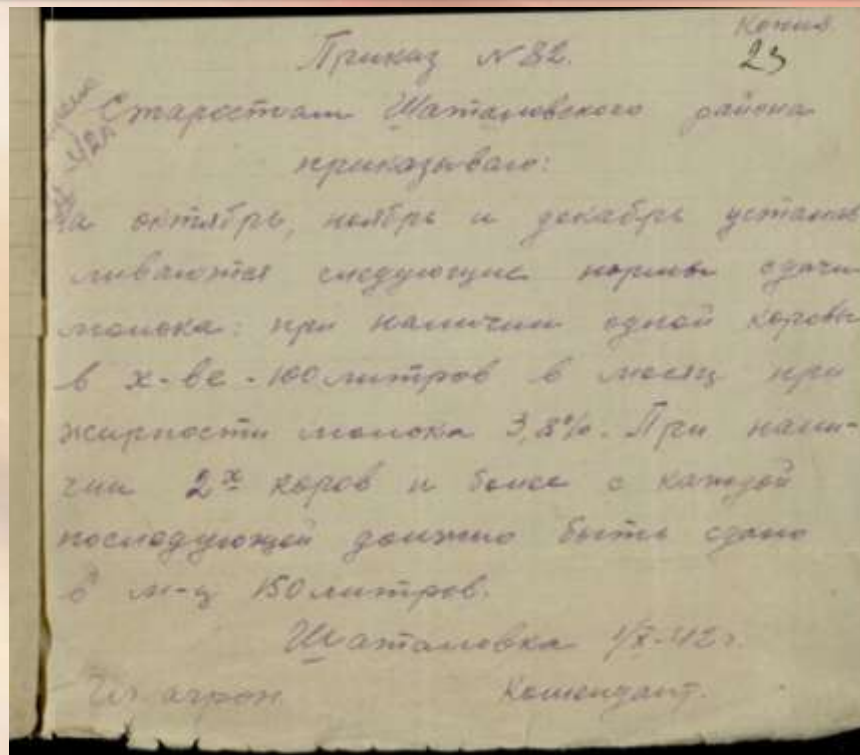 Копия
23
Приказ № 82.
Старостам Шаталовского района
приказываю:
На октябрь, ноябрь и декабрь устанав
ливаются следующие нормы сдачи
молока: при наличии одной коровы
в х-ве - 100 литров в месяц при
жирности молока 3,8%. При нали-
чии 2х коров и более с каждой
последующей должно быть сдано
в м-ц 150 литров.
Шаталовка 1/X-42 г.
Комендант.